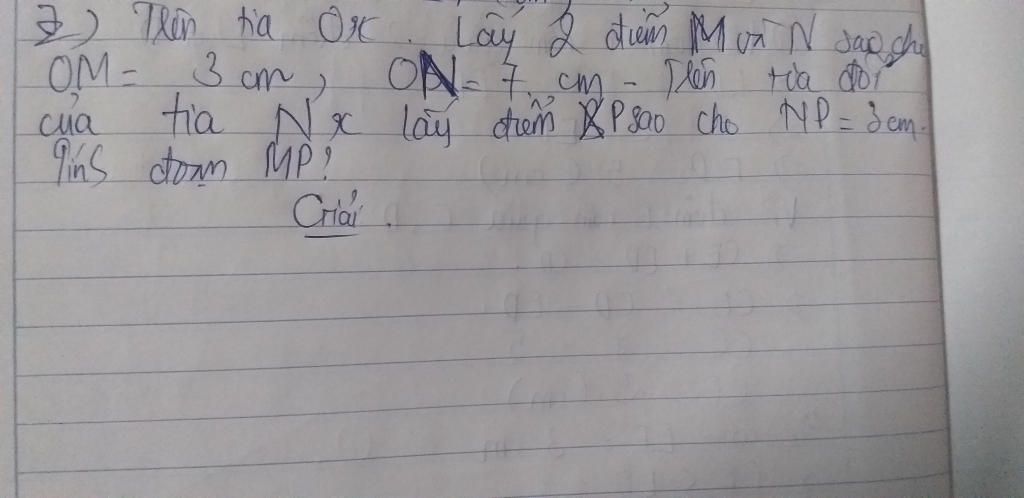 2) Trên tia Ox. Lấy 2 điểm M và N sao cho
OM = 3 cm, ON = 7 cm - Trên tia đối
của tia Nx lấy điểm P sao cho NP = 3cm.
Tính đoạn MP?
Giải.